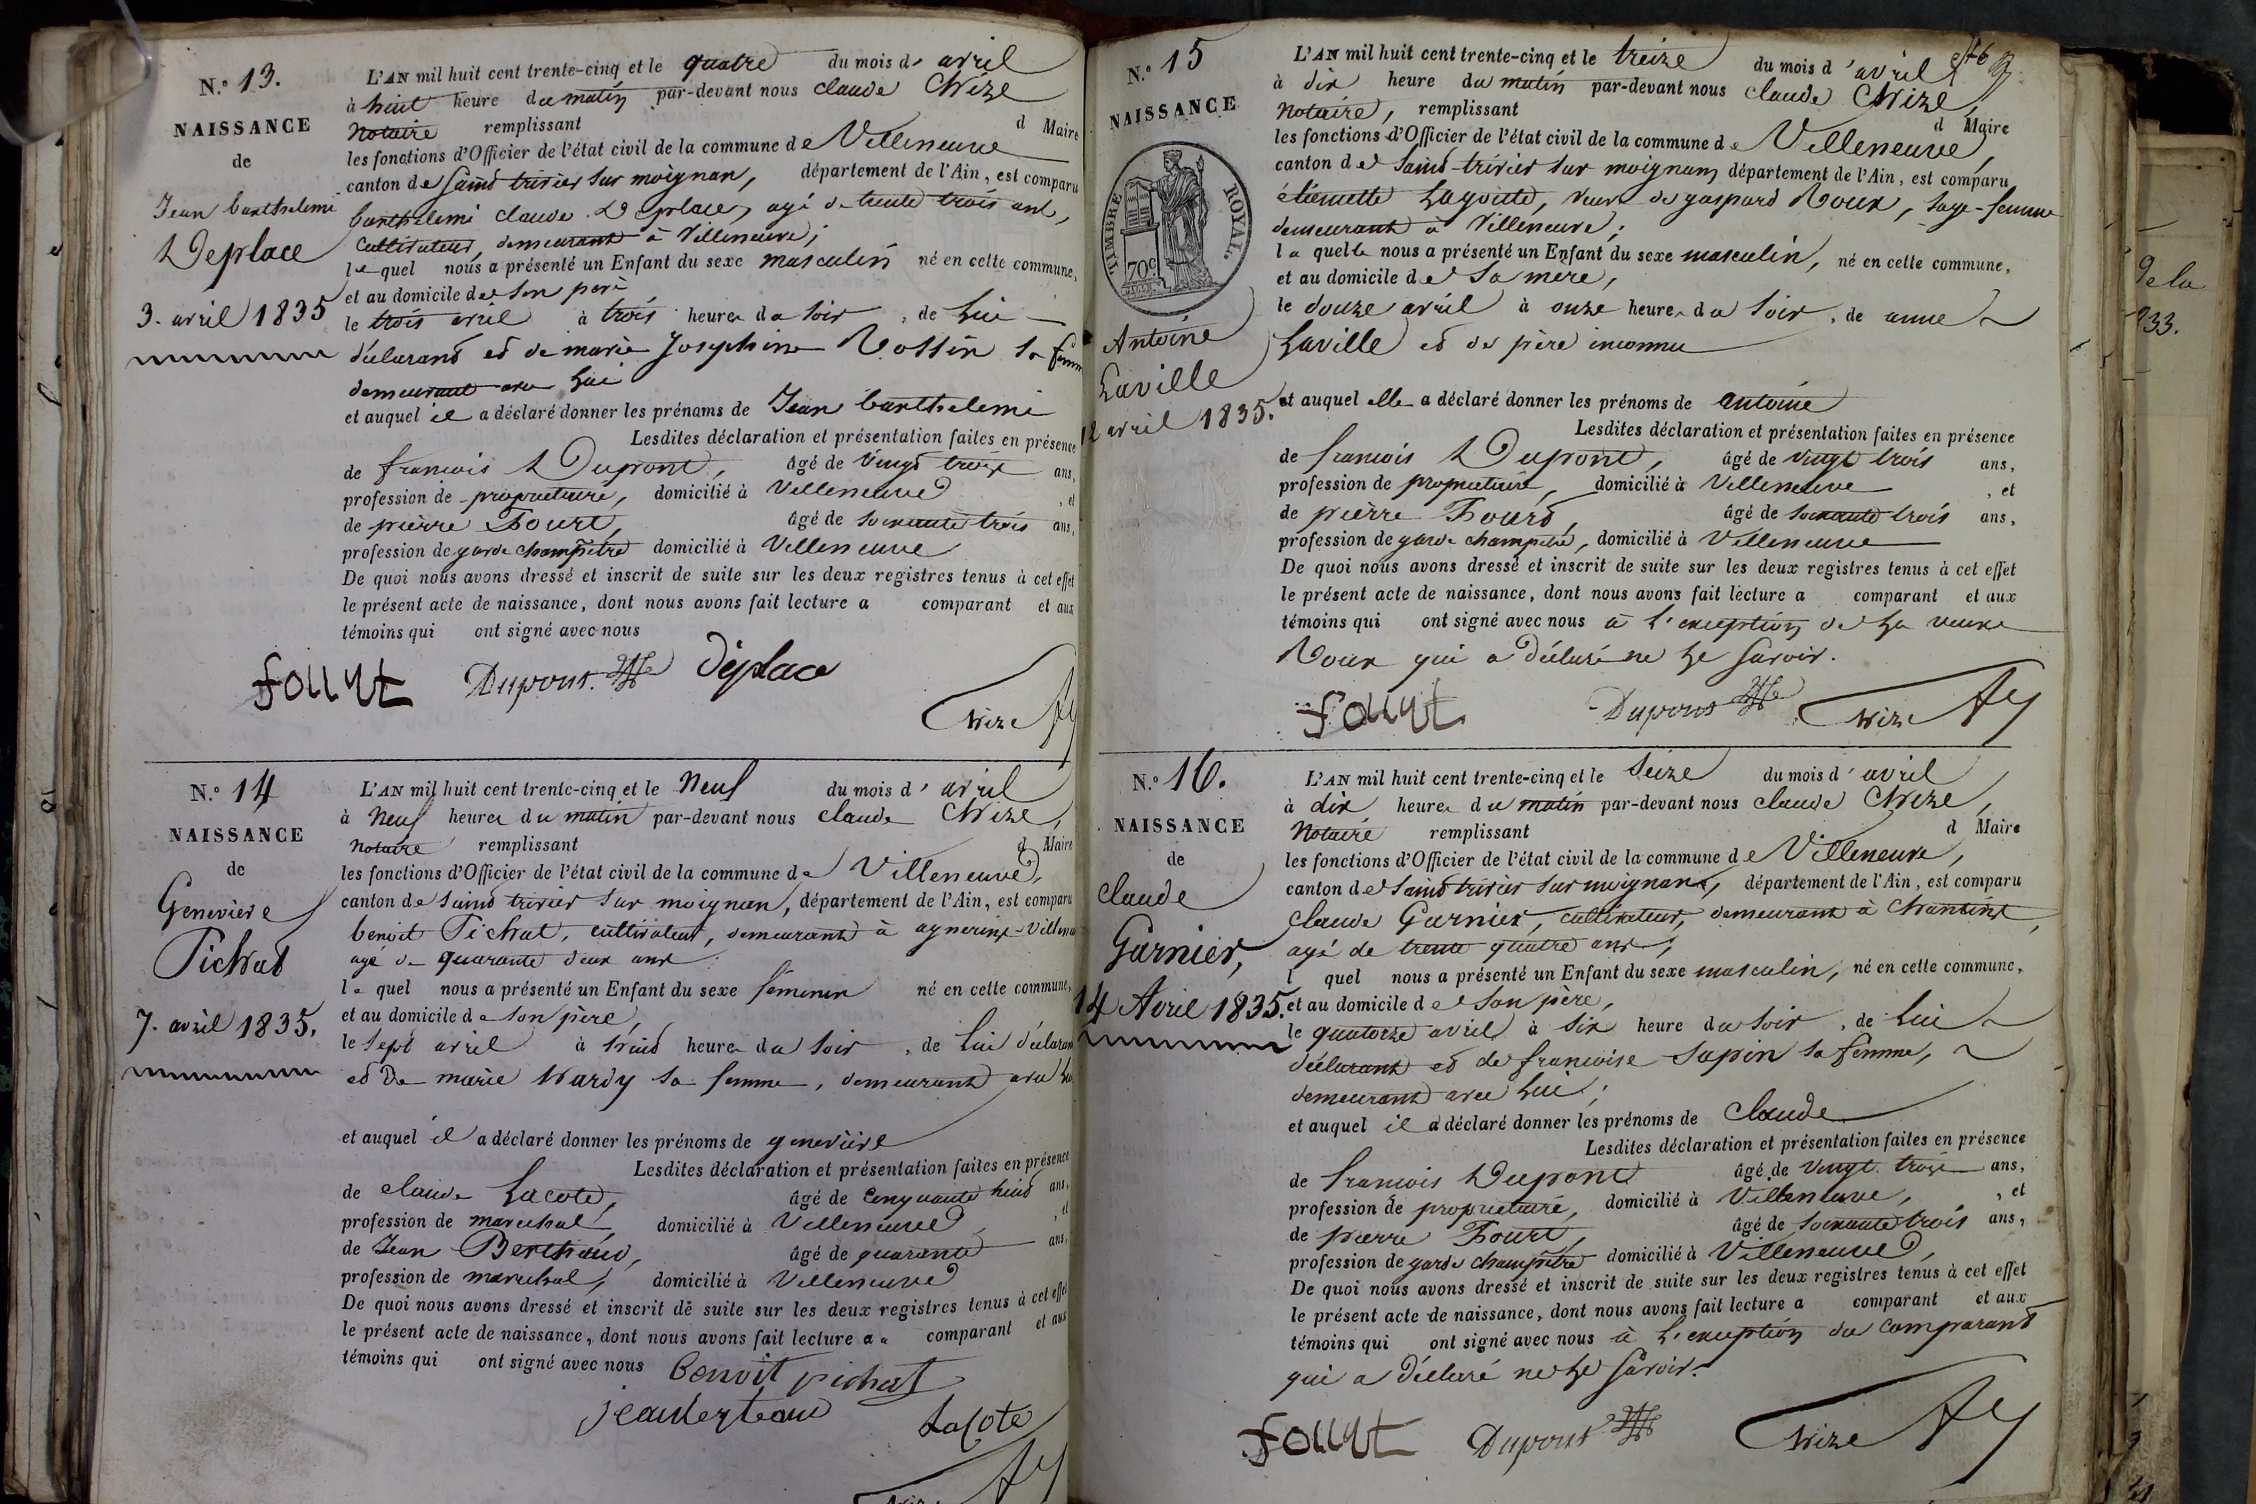 N.° 13.
NAISSANCE
de
Jean barthelemi
Deplace
3. avril 1835
L'AN mil huit cent trente-cinq et le quatre du mois d' avril
à huit heure du matin par-devant nous claude Chize
Notaire remplissant d Maire
les fonctions d'Officier de l'état civil de la commune de Villeneuve
canton de saint trivier sur moignan, département de l'Ain, est comparu
barthelemi claude Deplace, agé de trente trois ans,
cultivateur, demeurant à Villeneuve;
lequel nous a présenté un Enfant du sexe masculin né en cette commune,
et au domicile de son pere
le trois avril à trois heures du soir, de lui
déclarant et de marie Josephine Rossin sa femme
demeurant avec lui
et auquel il a déclaré donner les prénoms de Jean barthelemi
Lesdites déclaration et présentation faites en présence
de francois Dupont, âgé de vingt trois ans,
profession de propriétaire, domicilié à Villeneuve, et
de pierre Fourt, âgé de soixante trois ans,
profession de garde champêtre domicilié à Villeneuve
De quoi nous avons dressé et inscrit de suite sur les deux registres tenus à cet effet
le présent acte de naissance, dont nous avons fait lecture a comparant et aux
témoins qui ont signé avec nous
fouyt Dupont déplace
Chize
N.° 14
NAISSANCE
de
Genevieve
Pichat
7. avril 1835.
L'AN mil huit cent trente-cinq et le Neuf du mois d' avril
à Neuf heures du matin par-devant nous claude Chize,
Notaire remplissant d Maire
les fonctions d'Officier de l'état civil de la commune de Villeneuve,
canton de saint trivier sur moignan, département de l'Ain, est comparu
benoit Pichat, cultivateur, demeurant à agnerins-Villeneu
agé de quarante deux ans
lequel nous a présenté un Enfant du sexe féminin né en cette commune,
et au domicile de son père,
le sept avril à huit heures du soir, de lui déclarant
et de marie hardy sa femme, demeurant avec lui
et auquel il a déclaré donner les prénoms de genevieve
Lesdites déclaration et présentation faites en présence
de claude Lacote, âgé de cinquante huit ans,
profession de marechal, domicilié à Villeneuve, et
de Jean Berthaud, âgé de quarante ans,
profession de marechal, domicilié à Villeneuve
De quoi nous avons dressé et inscrit de suite sur les deux registres tenus à cet effet
le présent acte de naissance, dont nous avons fait lecture a comparant et aux
témoins qui ont signé avec nous Benoit pichat
Lacote
N.° 15
NAISSANCE
TIMBRE ROYAL
70c
Antoine
Laville
12 avril 1835.
L'AN mil huit cent trente-cinq et le treize du mois d' avril
à dix heure du matin par-devant nous claude Chize,
Notaire, remplissant d Maire
les fonctions d'Officier de l'état civil de la commune de Villeneuve,
canton de saint-trivier sur moignan, département de l'Ain, est comparu
étiennette Lagoutte, veuve de gaspard Roux, sage-femme
demeurant à Villeneuve;
laquelle nous a présenté un Enfant du sexe masculin, né en cette commune,
et au domicile de sa mere,
le douze avril à onze heures du soir, de anne
Laville et de père inconnu
et auquel elle a déclaré donner les prénoms de antoine
Lesdites déclaration et présentation faites en présence
de francois Dupont, âgé de vingt trois ans,
profession de propriétaire, domicilié à Villeneuve, et
de pierre Fourt, âgé de soixante trois ans,
profession de garde champetre, domicilié à Villeneuve
De quoi nous avons dressé et inscrit de suite sur les deux registres tenus à cet effet
le présent acte de naissance, dont nous avons fait lecture a comparant et aux
témoins qui ont signé avec nous à l'exception de la veuve
Roux qui a déclaré ne le savoir.
fouyt Dupont Chize
N.° 16.
NAISSANCE
de
claude
Garnier,
14 Avril 1835.
L'AN mil huit cent trente-cinq et le seize du mois d' avril
à dix heures du matin par-devant nous claude Chize,
Notaire remplissant d Maire
les fonctions d'Officier de l'état civil de la commune de Villeneuve,
canton de saint trivier sur moignans, département de l'Ain, est comparu
claude Garnier, cultivateur, demeurant à Chantins,
agé de trente quatre ans;
l quel nous a présenté un Enfant du sexe masculin, né en cette commune,
et au domicile de son père,
le quatorze avril à six heure du soir, de lui
déclarant et de francoise sapin sa femme,
demeurant avec lui;
et auquel il a déclaré donner les prénoms de claude
Lesdites déclaration et présentation faites en présence
de francois Dupont âgé de vingt trois ans,
profession de propriétaire, domicilié à Villeneuve, et
de pierre Fourt, âgé de soixante trois ans,
profession de garde champêtre domicilié à Villeneuve,
De quoi nous avons dressé et inscrit de suite sur les deux registres tenus à cet effet
le présent acte de naissance, dont nous avons fait lecture a comparant et aux
témoins qui ont signé avec nous à l'exception du comparant
qui a déclaré ne le savoir.
fouyt Dupont Chize
de la
833.